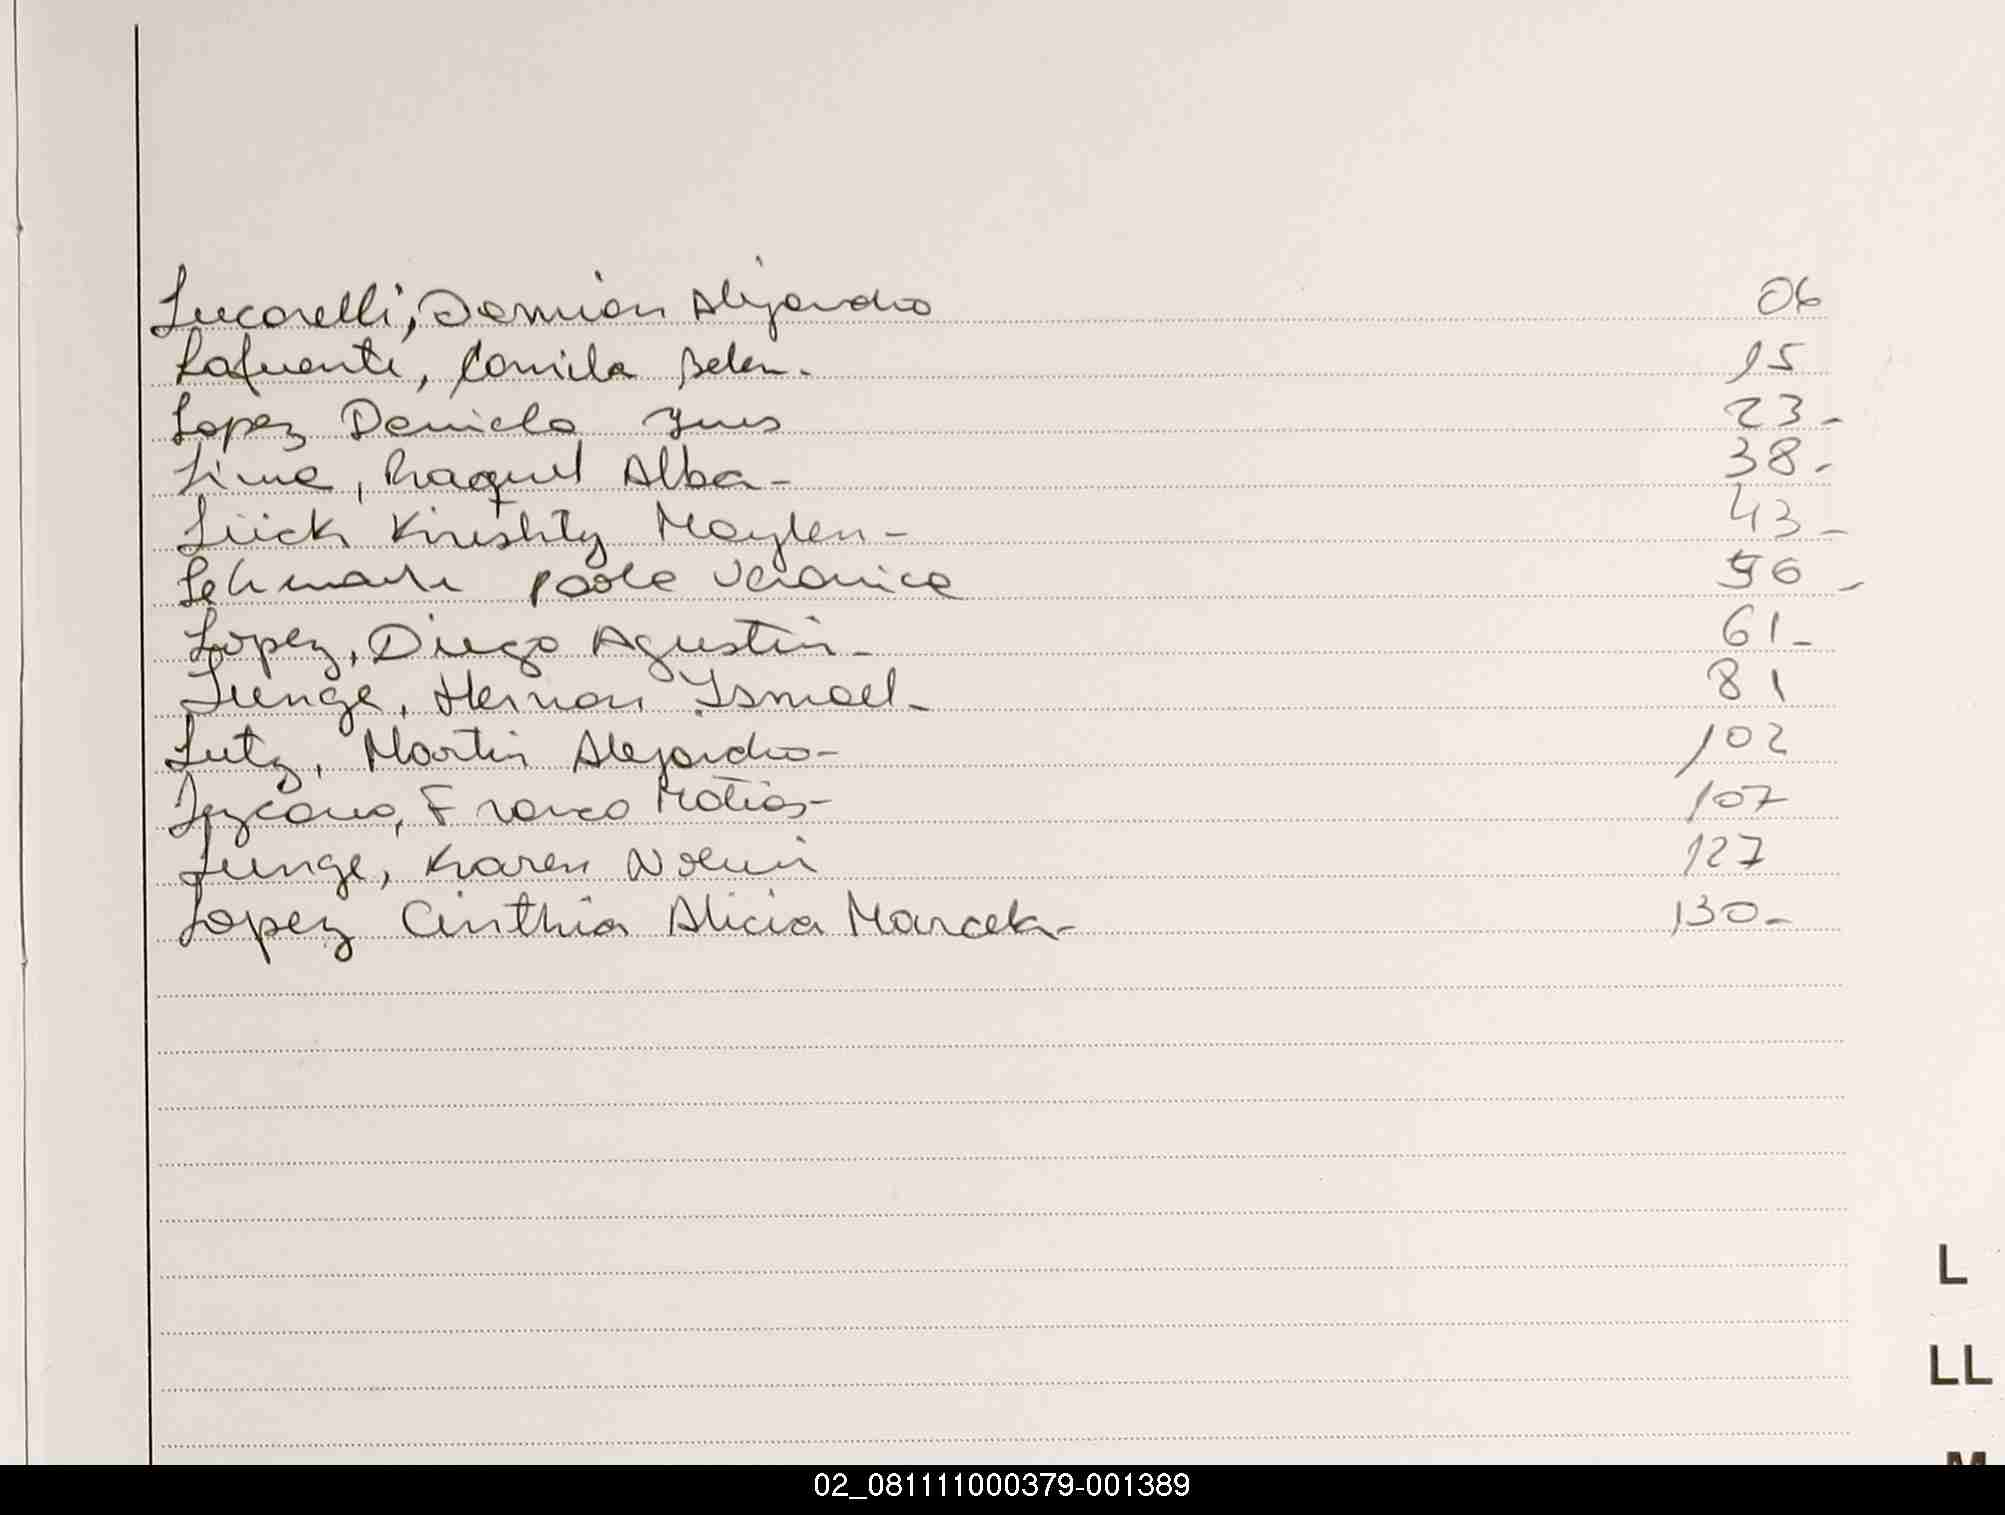 Lucarelli, Damian Alejandro 06
Lafuente, Camila Belen. 15
Lopez Daniela Ines 23-
Lima, Raquel Alba- 38-
Lück Kirishty Maylen- 43-
Lehmann Paola Veronica 56-
Lopez, Diego Agustin- 61-
Lunge, Hernan Ismael- 81
Lutz, Martin Alejandro- 102
Lezcano, Franco Matias- 107
Lunge, Karen Noemi 127
Lopez Cinthia Alicia Marcela- 130-
L
LL
M
02_081111000379-001389